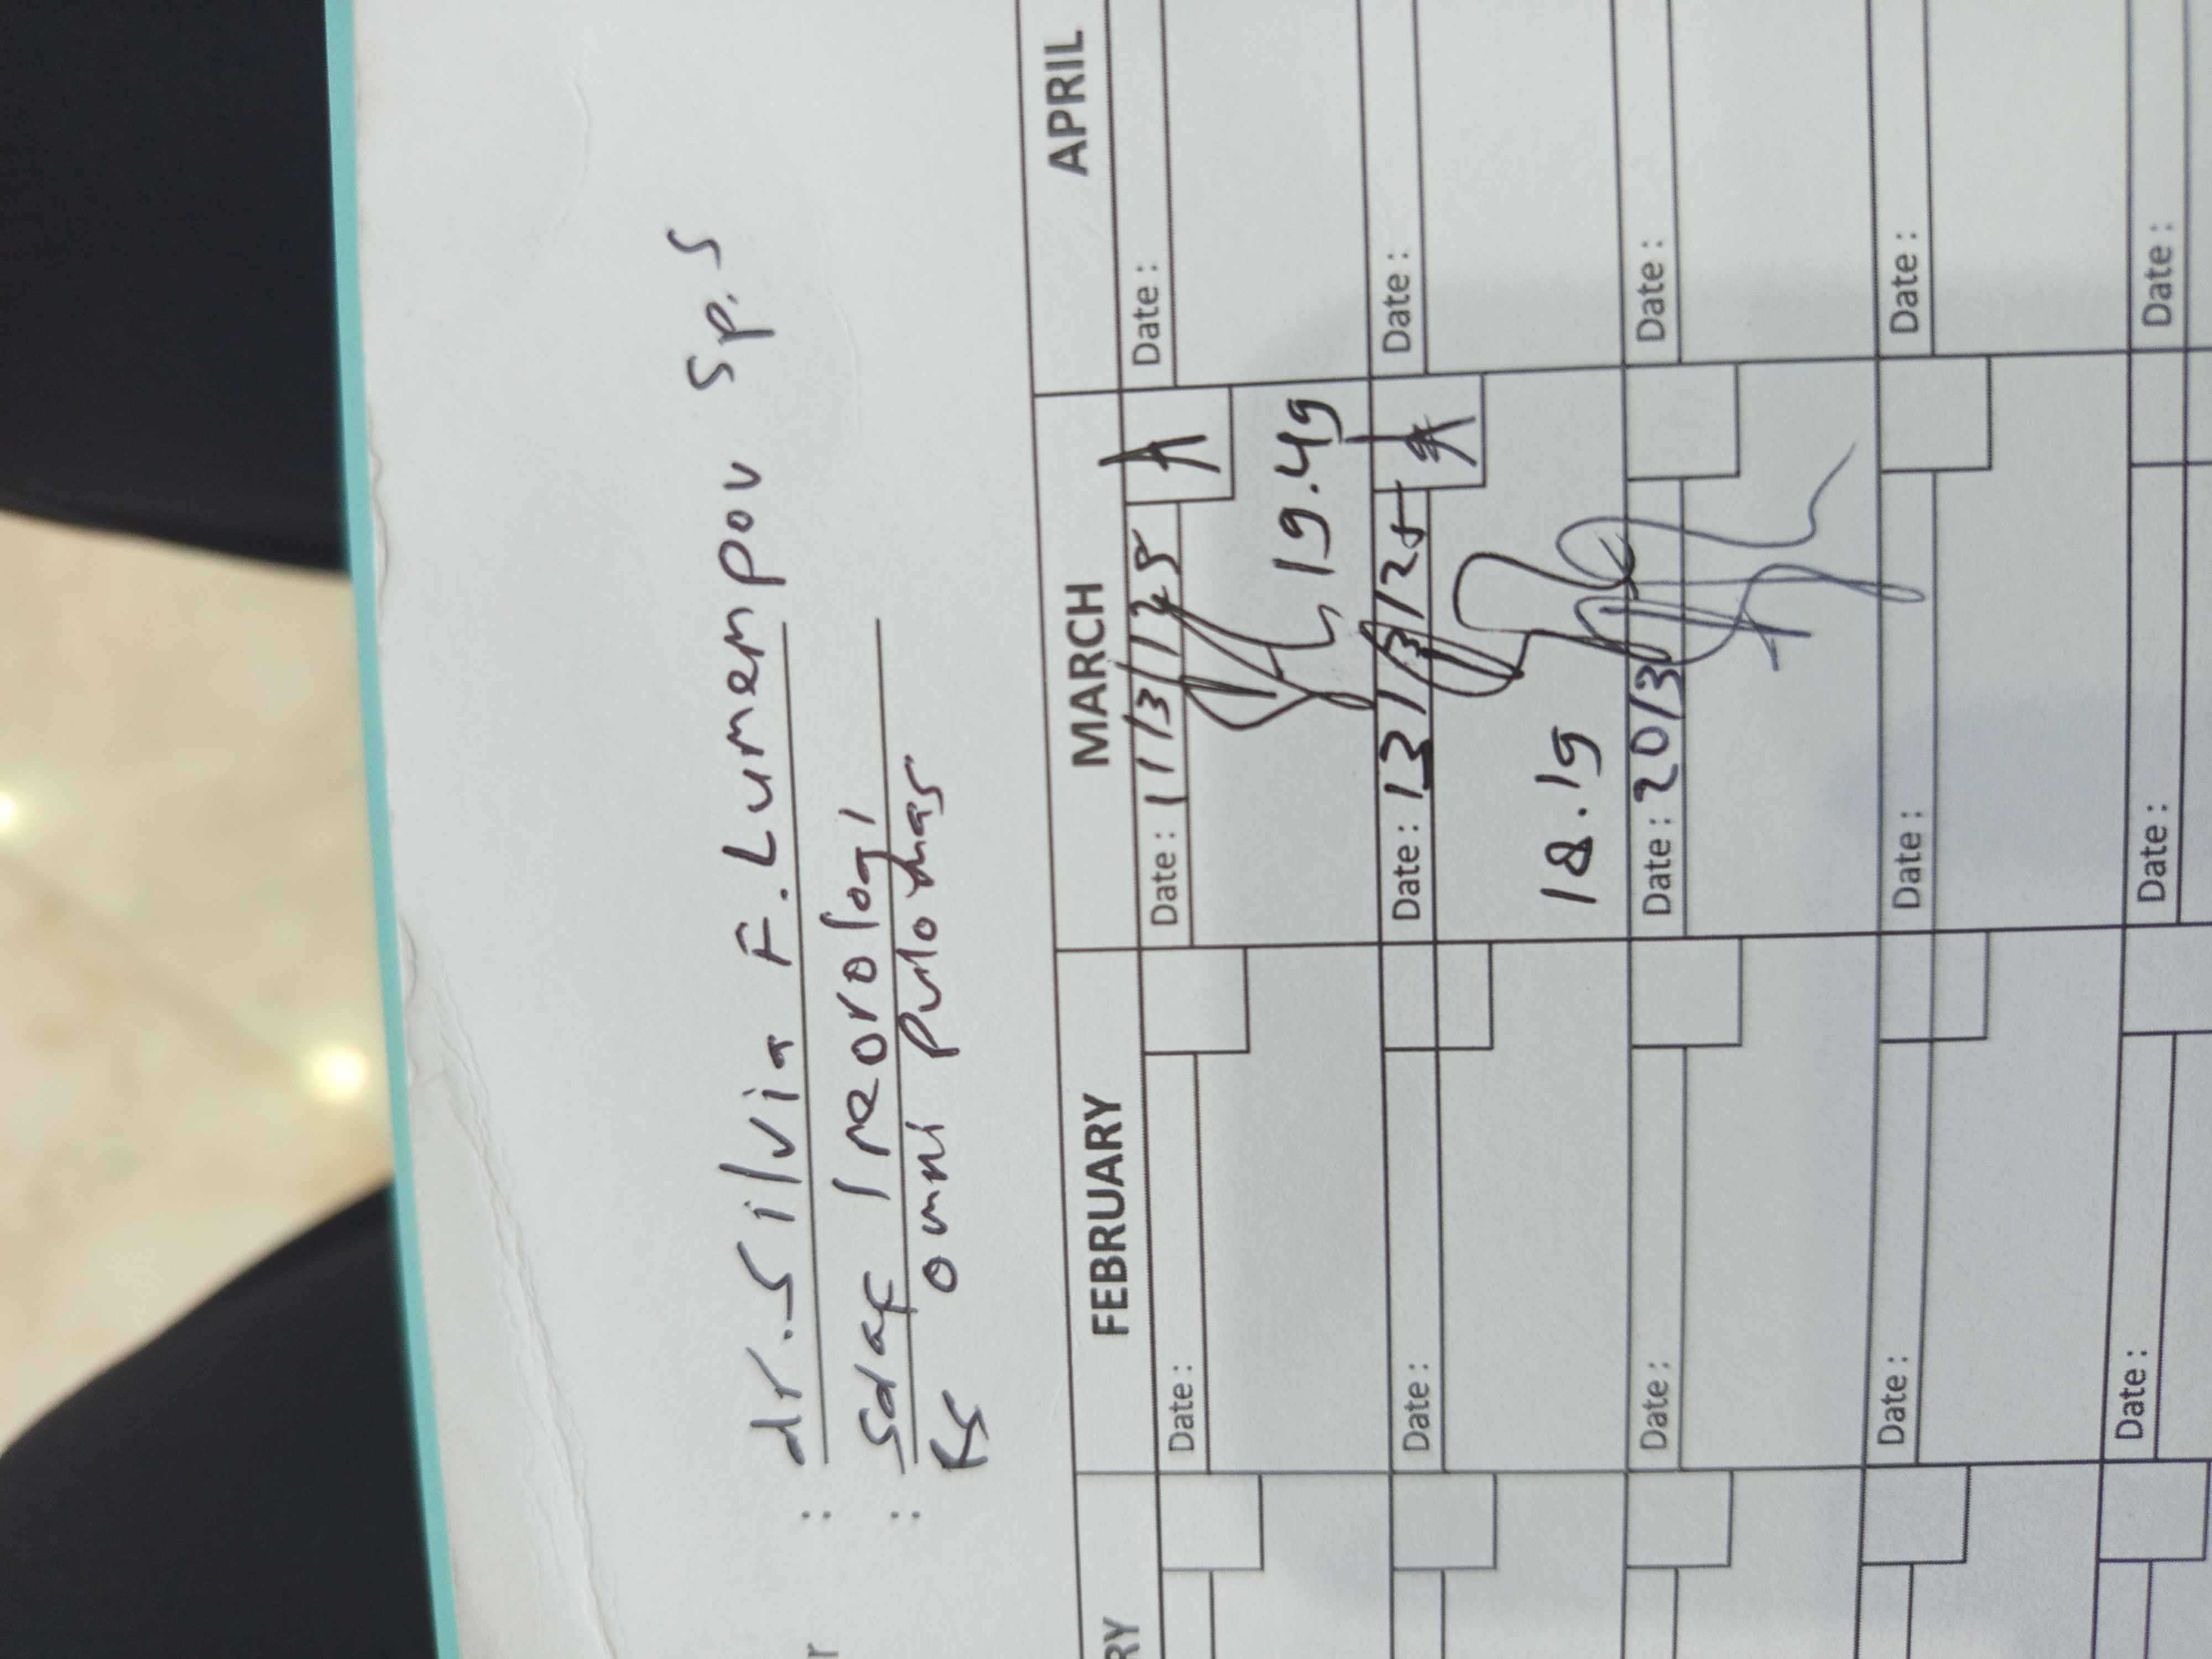 : dr. Silvia F. Lumempow Sp. S
: Sdaf / neorologi
RS omni Pulo mas
RY FEBRUARY MARCH APRIL
Date : Date : 11/3/25 Date :
19.49
Date : Date : 13/3/25 Date :
18.19
Date : Date : 20/3 Date :
Date : Date : Date :
Date : Date : Date :